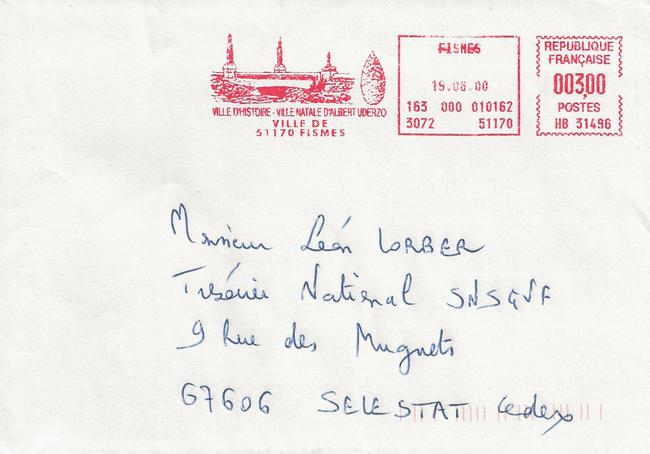 VILLE D'HISTOIRE - VILLE NATALE D'ALBERT UDERZO
VILLE DE
51170 FISMES
FISMES
19.06.00
163 000 010162
3072 51170
REPUBLIQUE
FRANÇAISE
003,00
POSTES
HB 31496
Monsieur Léon LORBER
Trésorier National
9 Rue des Muguets
67606 SELESTAT Cedex